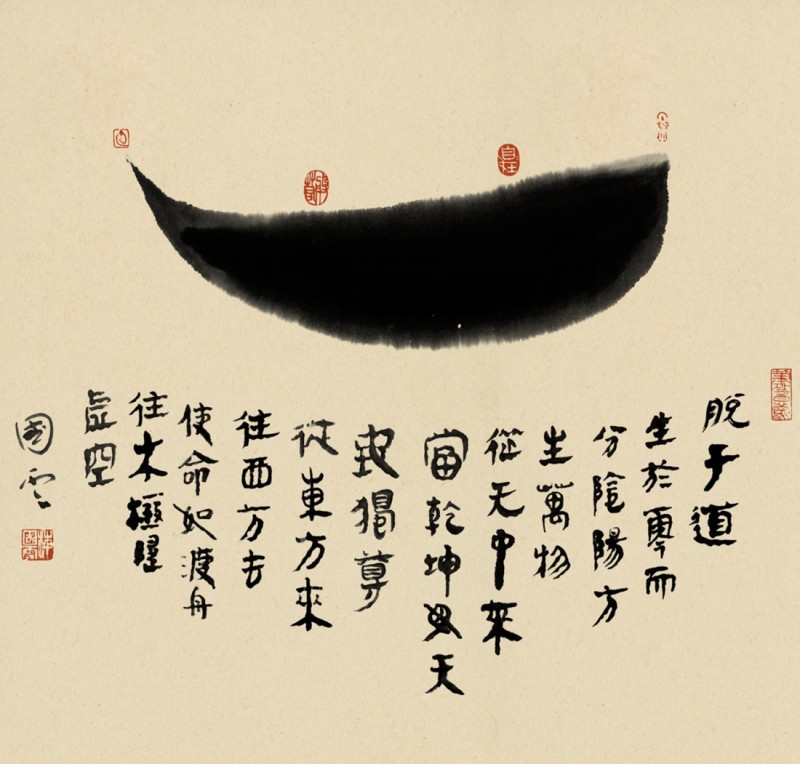 脫于道
生於零而
分陰陽方
生萬物
從无中來
當乾坤天
獨尊
從東方來
往西方去
使命如渡舟
往木極星
虛空
國雲
自在